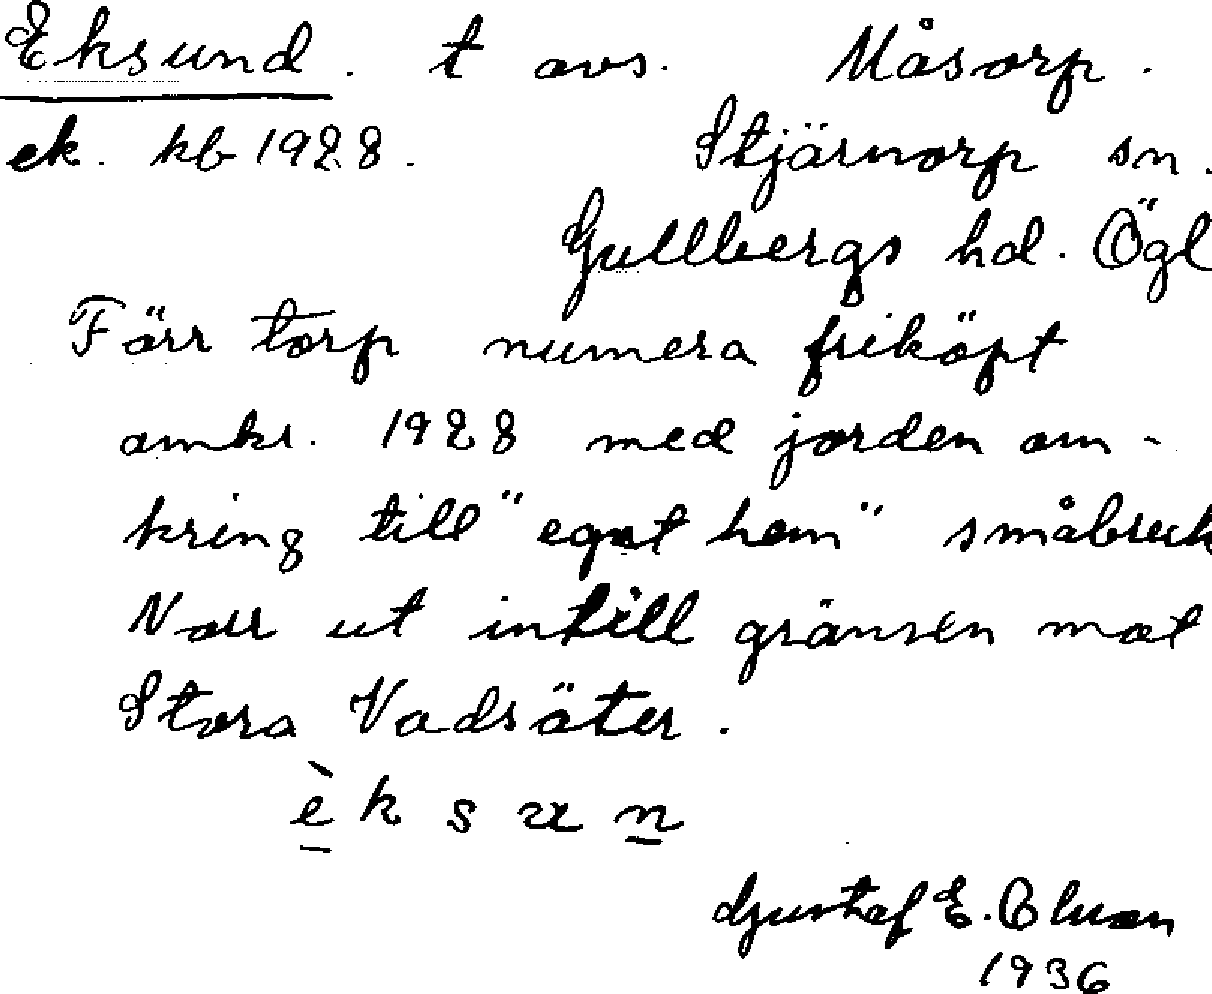 Eksund. t avs. Måsorp.
ek. kb 1928. Stjärnorp sn.
Gullbergs hd. Ögl
Förr torp numera friköpt
omkr. 1928 med jorden om-
kring till "eget hem" småbruk
Norr ut intill gränsen mot
Stora Vadsäter.
è k s u n
Gustaf E. Olson
1936